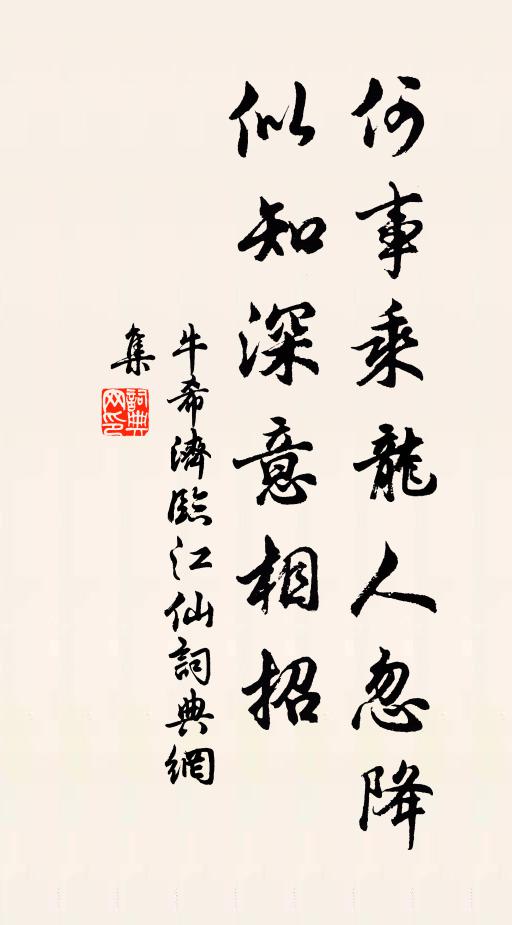 何事乘龍人忽降
似知深意相招
牛希濟臨江仙詞典網
集
詞典网印